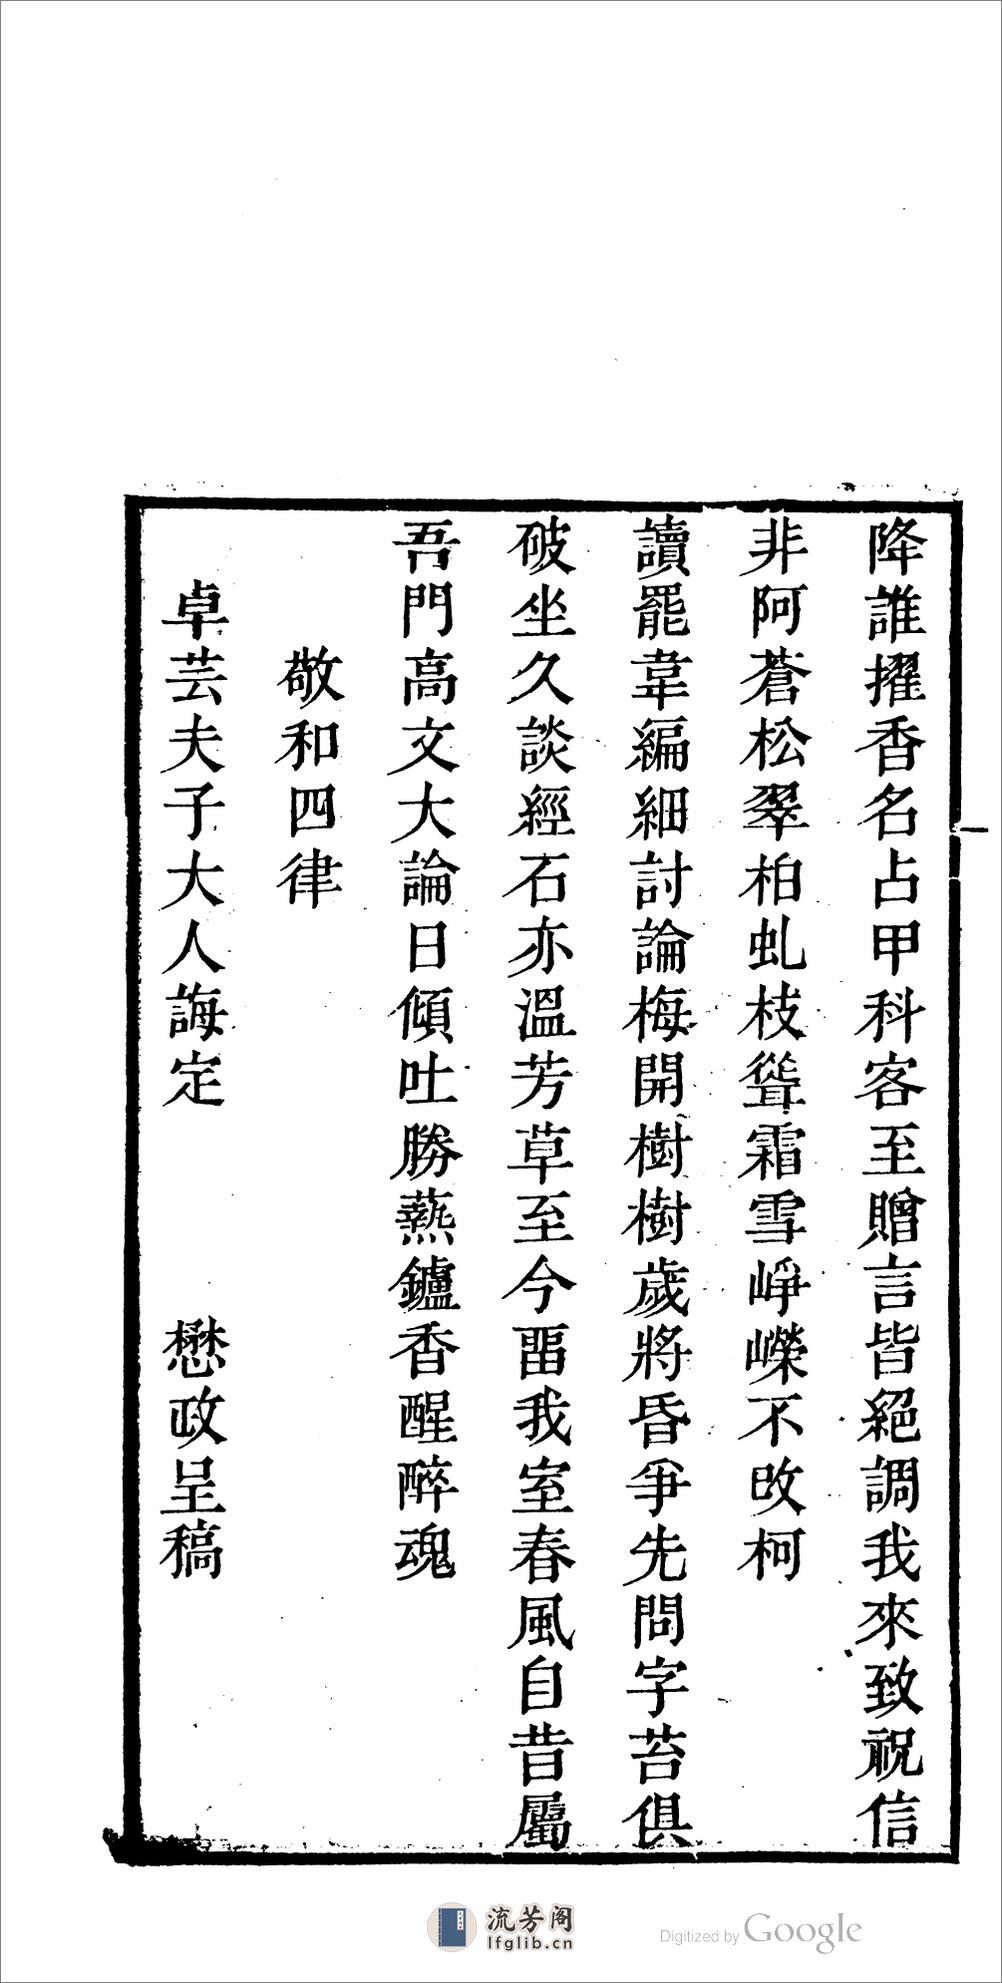 降誰擢香名占甲科客至贈言皆絕調我來致祝信
非阿蒼松翠柏虬枝聳霜雪崢嶸不改柯
讀罷韋編細討論梅開樹樹歲將昏爭先問字苔俱
破坐久談經石亦溫芳草至今畱我室春風自昔屬
吾門高文大論日傾吐勝爇鑪香醒醉魂
敬和四律
卓芸夫子大人誨定 懋政呈稿
流芳阁
lfglib.cn
Digitized by Google